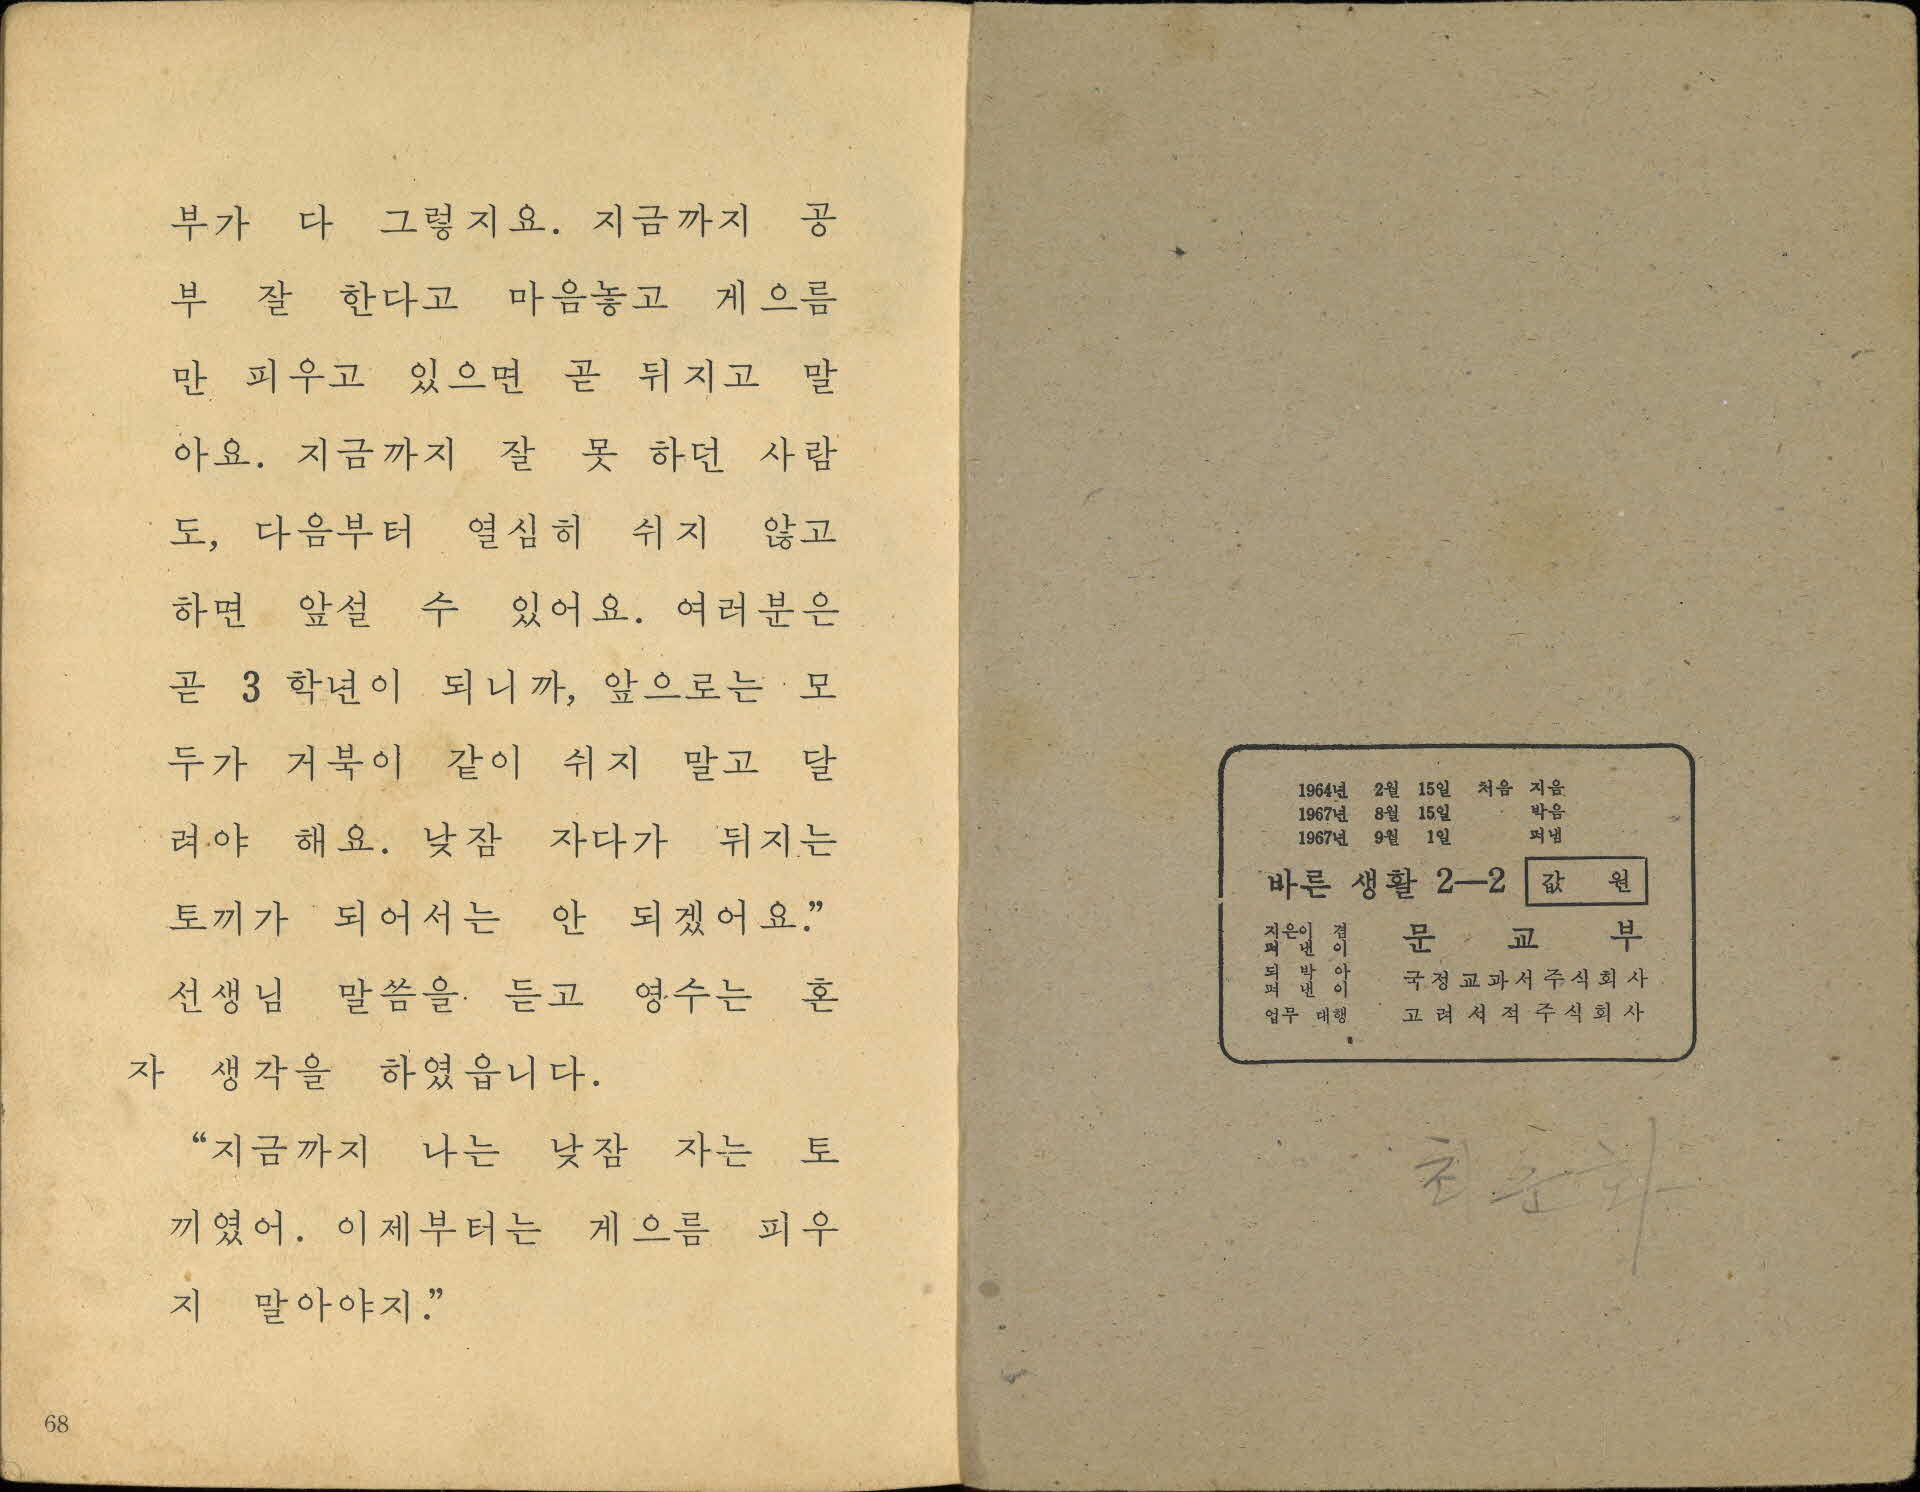 부가 다 그렇지요. 지금까지 공
부 잘 한다고 마음놓고 게으름
만 피우고 있으면 곧 뒤지고 말
아요. 지금까지 잘 못 하던 사람
도, 다음부터 열심히 쉬지 않고
하면 앞설 수 있어요. 여러분은
곧 3 학년이 되니까, 앞으로는 모
두가 거북이 같이 쉬지 말고 달
려야 해요. 낮잠 자다가 뒤지는
토끼가 되어서는 안 되겠어요.”
선생님 말씀을 듣고 영수는 혼
자 생각을 하였읍니다.
“지금까지 나는 낮잠 자는 토
끼였어. 이제부터는 게으름 피우
지 말아야지.”
68
1964년 2월 15일 처음 지음
1967년 8월 15일 박음
1967년 9월 1일 펴냄
바른 생활 2—2 값 원
지은이 겸
펴 낸 이 문 교 부
되 박 아
펴 낸 이 국정교과서주식회사
업무 대행 고려서적주식회사